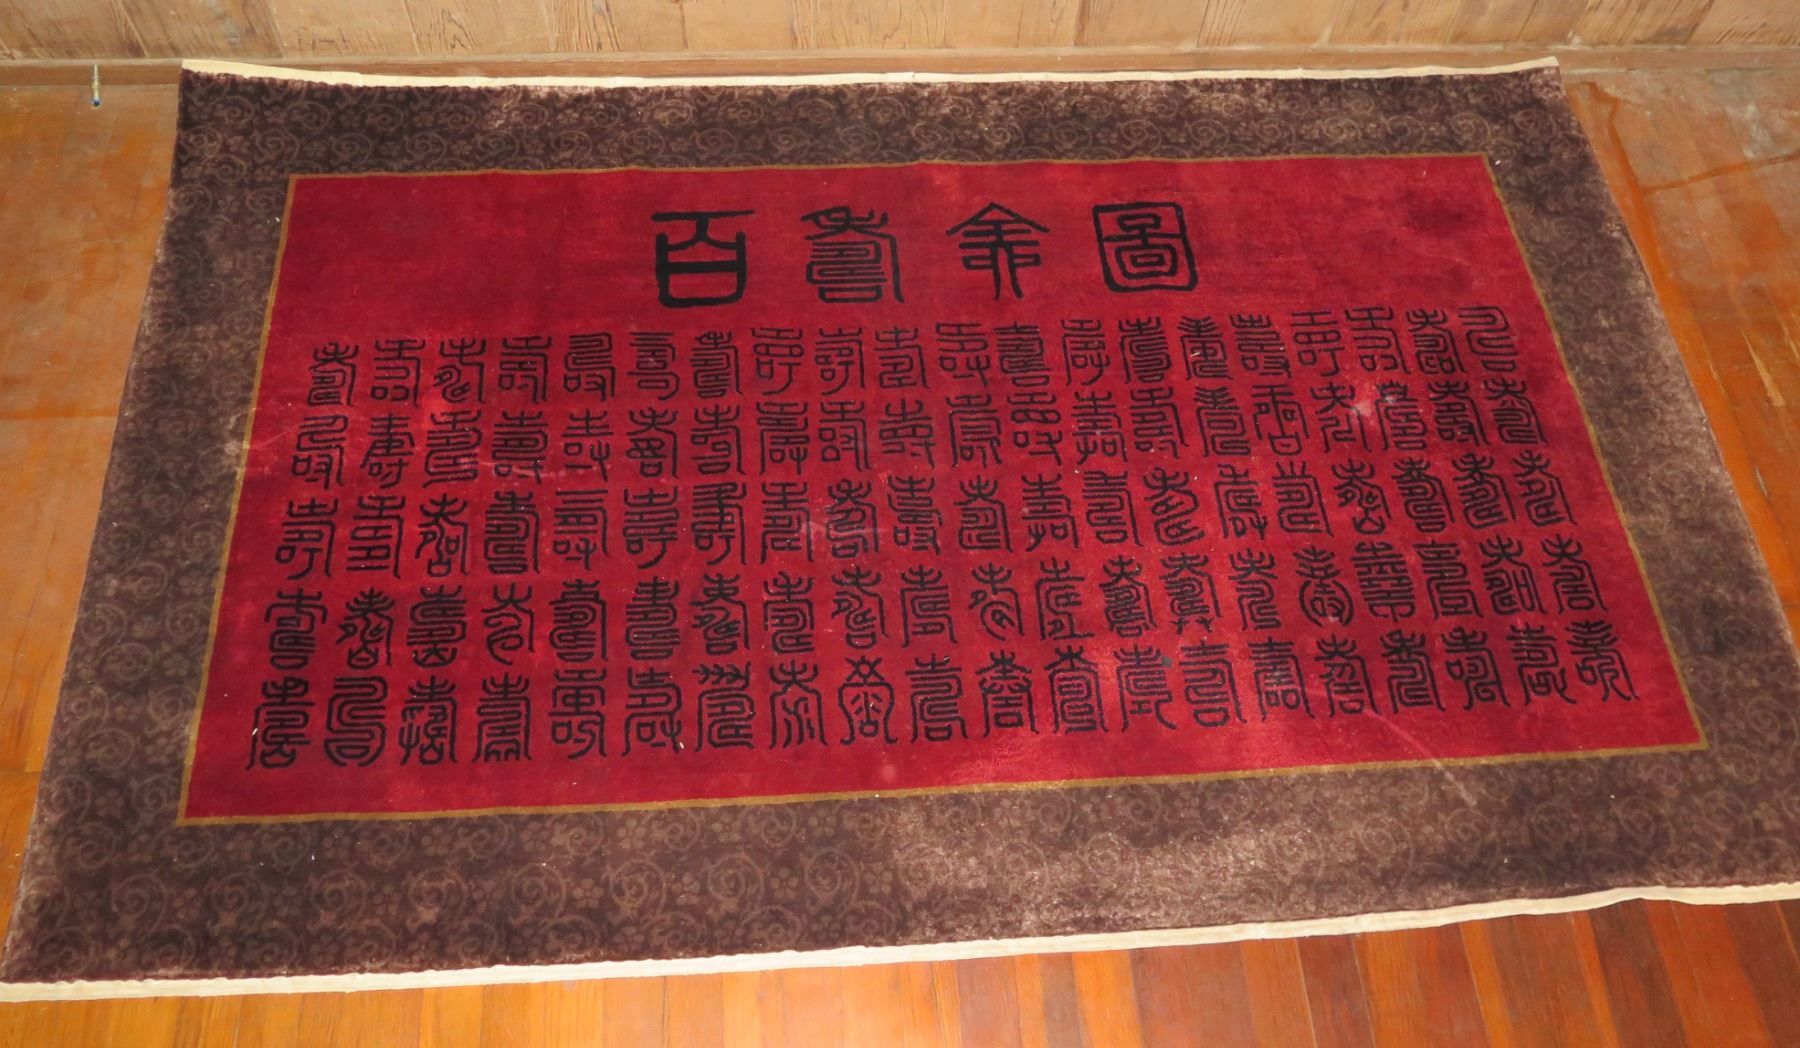 百壽全圖
壽壽壽壽壽壽壽壽壽壽壽壽壽壽壽壽壽壽壽壽
壽壽壽壽壽壽壽壽壽壽壽壽壽壽壽壽壽壽壽壽
壽壽壽壽壽壽壽壽壽壽壽壽壽壽壽壽壽壽壽壽
壽壽壽壽壽壽壽壽壽壽壽壽壽壽壽壽壽壽壽壽
壽壽壽壽壽壽壽壽壽壽壽壽壽壽壽壽壽壽壽壽